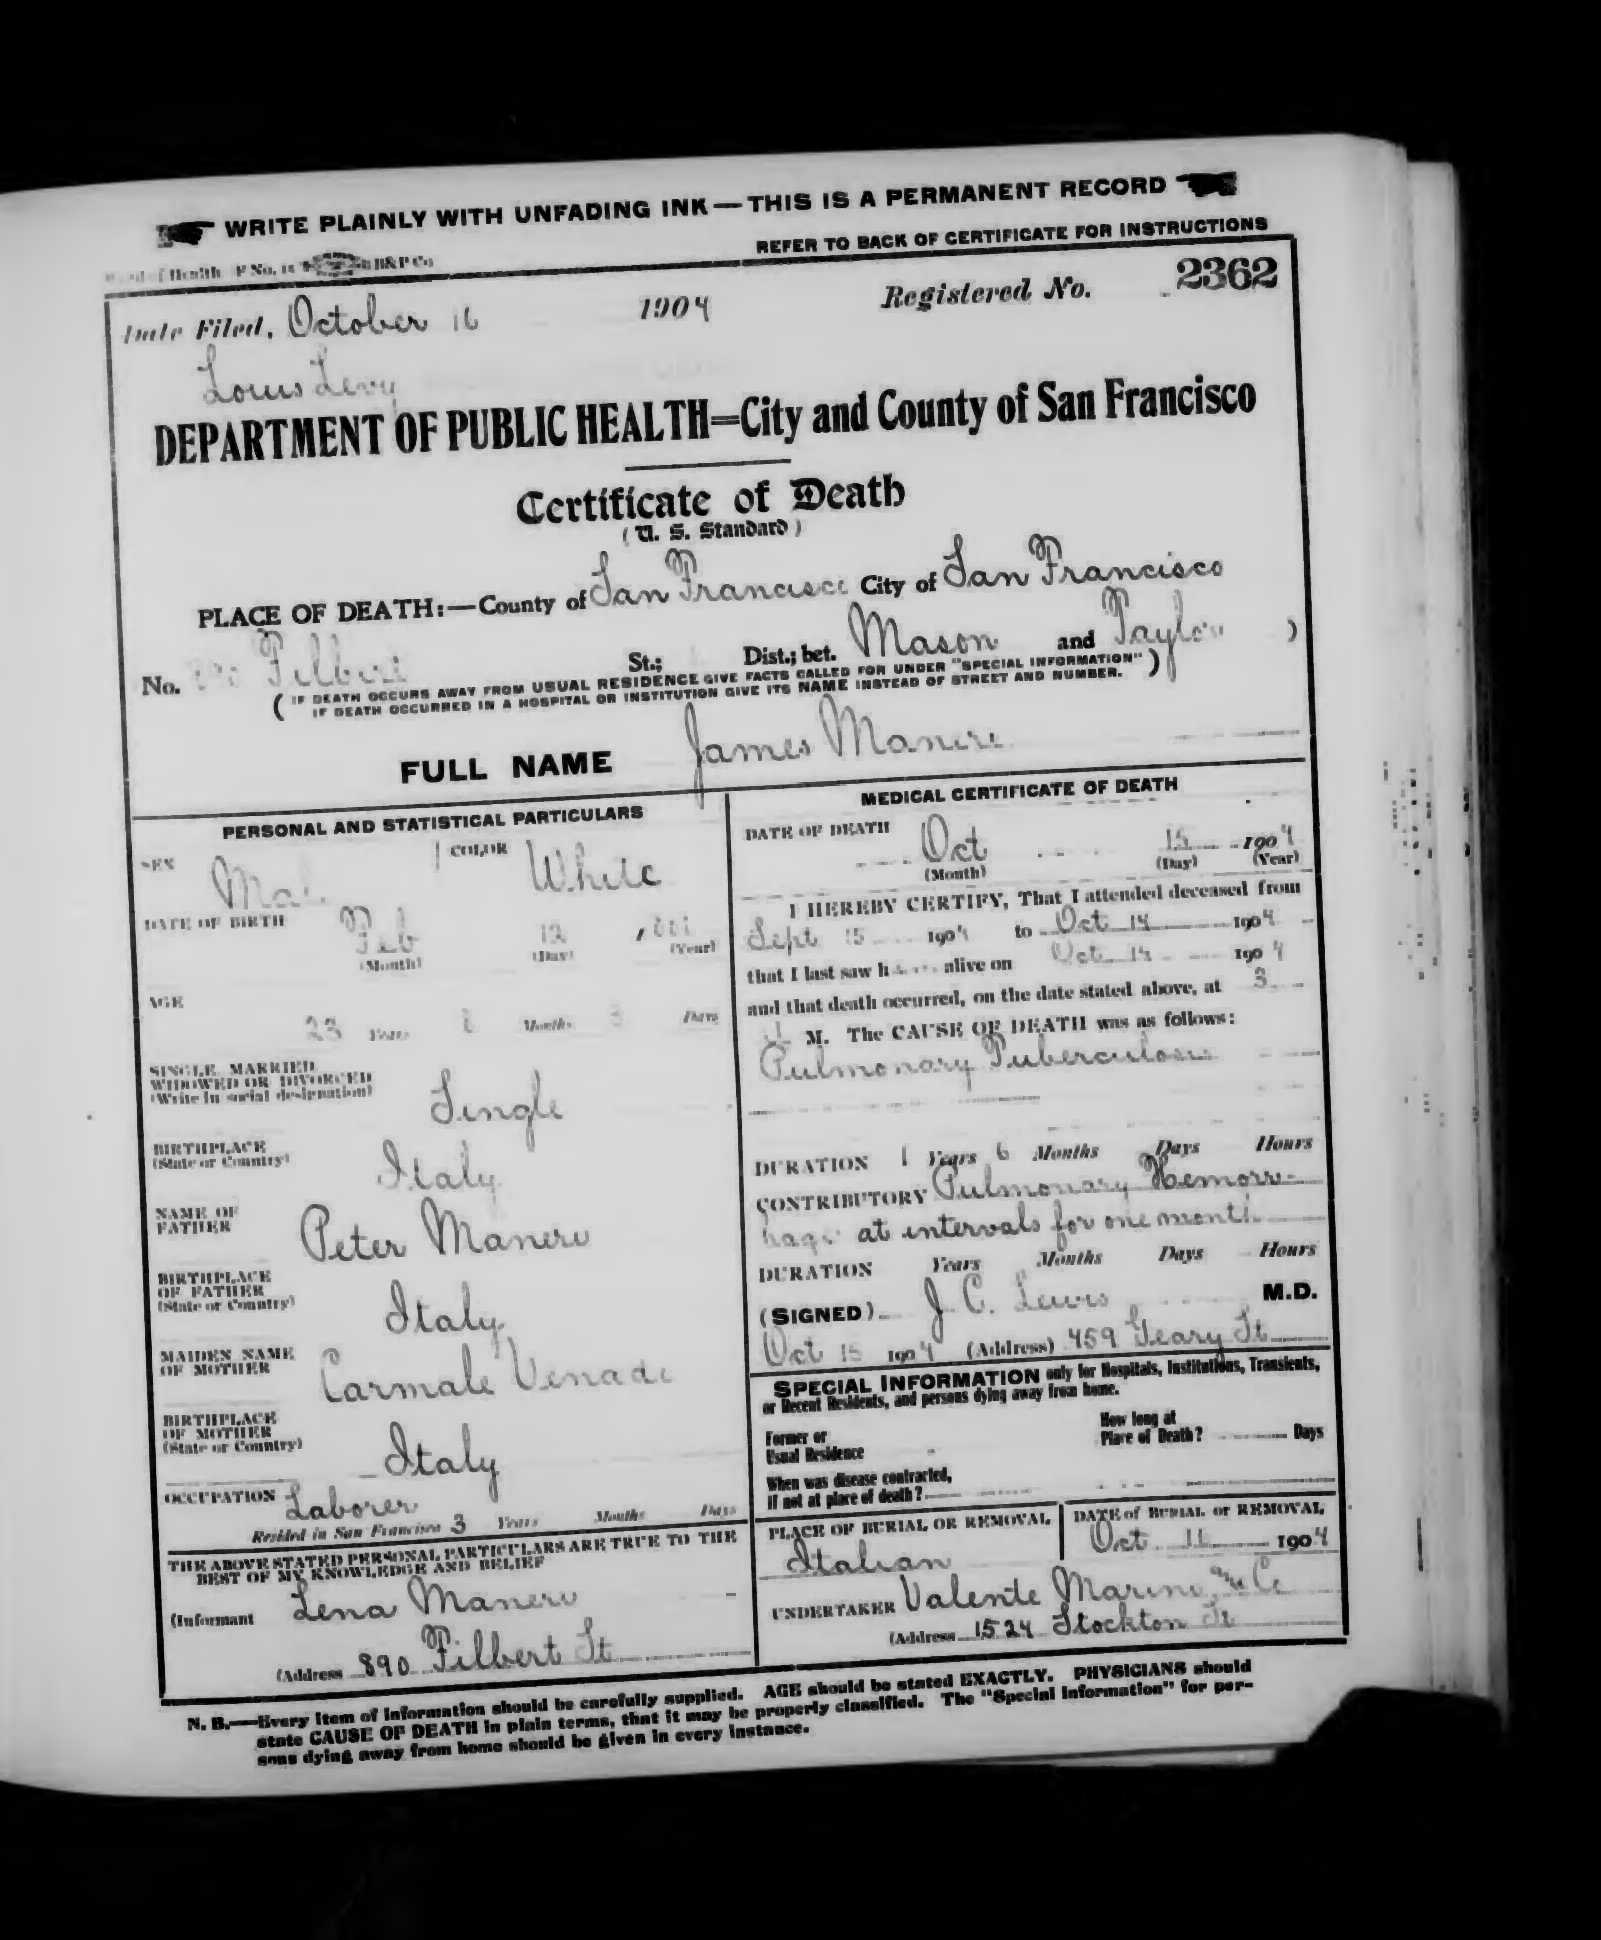 WRITE PLAINLY WITH UNFADING INK — THIS IS A PERMANENT RECORD
REFER TO BACK OF CERTIFICATE FOR INSTRUCTIONS
of Health B&P Co
Date Filed, October 16 1904 Registered No. 2362
Louis Levy
DEPARTMENT OF PUBLIC HEALTH=City and County of San Francisco
Certificate of Death
(U. S. Standard)
PLACE OF DEATH:—County of San Francisco City of San Francisco
No. Filbert St.; Dist.; bet. Mason and Taylor )
( IF DEATH OCCURS AWAY FROM USUAL RESIDENCE GIVE FACTS CALLED FOR UNDER "SPECIAL INFORMATION" )
IF DEATH OCCURRED IN A HOSPITAL OR INSTITUTION GIVE ITS NAME INSTEAD OF STREET AND NUMBER.
FULL NAME James Maneri
PERSONAL AND STATISTICAL PARTICULARS
SEX Mal COLOR White
DATE OF BIRTH Feb 12
(Month) (Day) (Year)
AGE
23 Years 8 Months 3 Days
SINGLE, MARRIED,
WIDOWED OR DIVORCED
(Write in social designation) Single
BIRTHPLACE
(State or Country) Italy
NAME OF
FATHER Peter Maneri
BIRTHPLACE
OF FATHER
(State or Country) Italy
MAIDEN NAME
OF MOTHER Carmale Venade
BIRTHPLACE
OF MOTHER
(State or Country) Italy
OCCUPATION Laborer
Resided in San Francisco 3 Years Months Days
THE ABOVE STATED PERSONAL PARTICULARS ARE TRUE TO THE
BEST OF MY KNOWLEDGE AND BELIEF
(Informant Lena Maneri
(Address 890 Filbert St
MEDICAL CERTIFICATE OF DEATH
DATE OF DEATH Oct 15 1904
(Month) (Day) (Year)
I HEREBY CERTIFY, That I attended deceased from
Sept 15 1904 to Oct 14 1904
that I last saw h alive on Oct 14 1904
and that death occurred, on the date stated above, at 3
M. The CAUSE OF DEATH was as follows:
Pulmonary Tuberculosis
DURATION 1 Years 6 Months Days Hours
CONTRIBUTORY Pulmonary Hemorr-
hage at intervals for one month
DURATION Years Months Days Hours
(SIGNED) J. C. Lewis M.D.
Oct 15 1904 (Address) 459 Geary St
SPECIAL INFORMATION only for Hospitals, Institutions, Transients,
or Recent Residents, and persons dying away from home.
Former or
Usual Residence
How long at
Place of Death? Days
When was disease contracted,
If not at place of death?
PLACE OF BURIAL OR REMOVAL
Italian
DATE of BURIAL or REMOVAL
Oct 16 1904
UNDERTAKER Valente Marini and Co
(Address 1524 Stockton St
N. B.—Every item of information should be carefully supplied. AGE should be stated EXACTLY. PHYSICIANS should
state CAUSE OF DEATH in plain terms, that it may be properly classified. The "Special Information" for per-
sons dying away from home should be given in every instance.